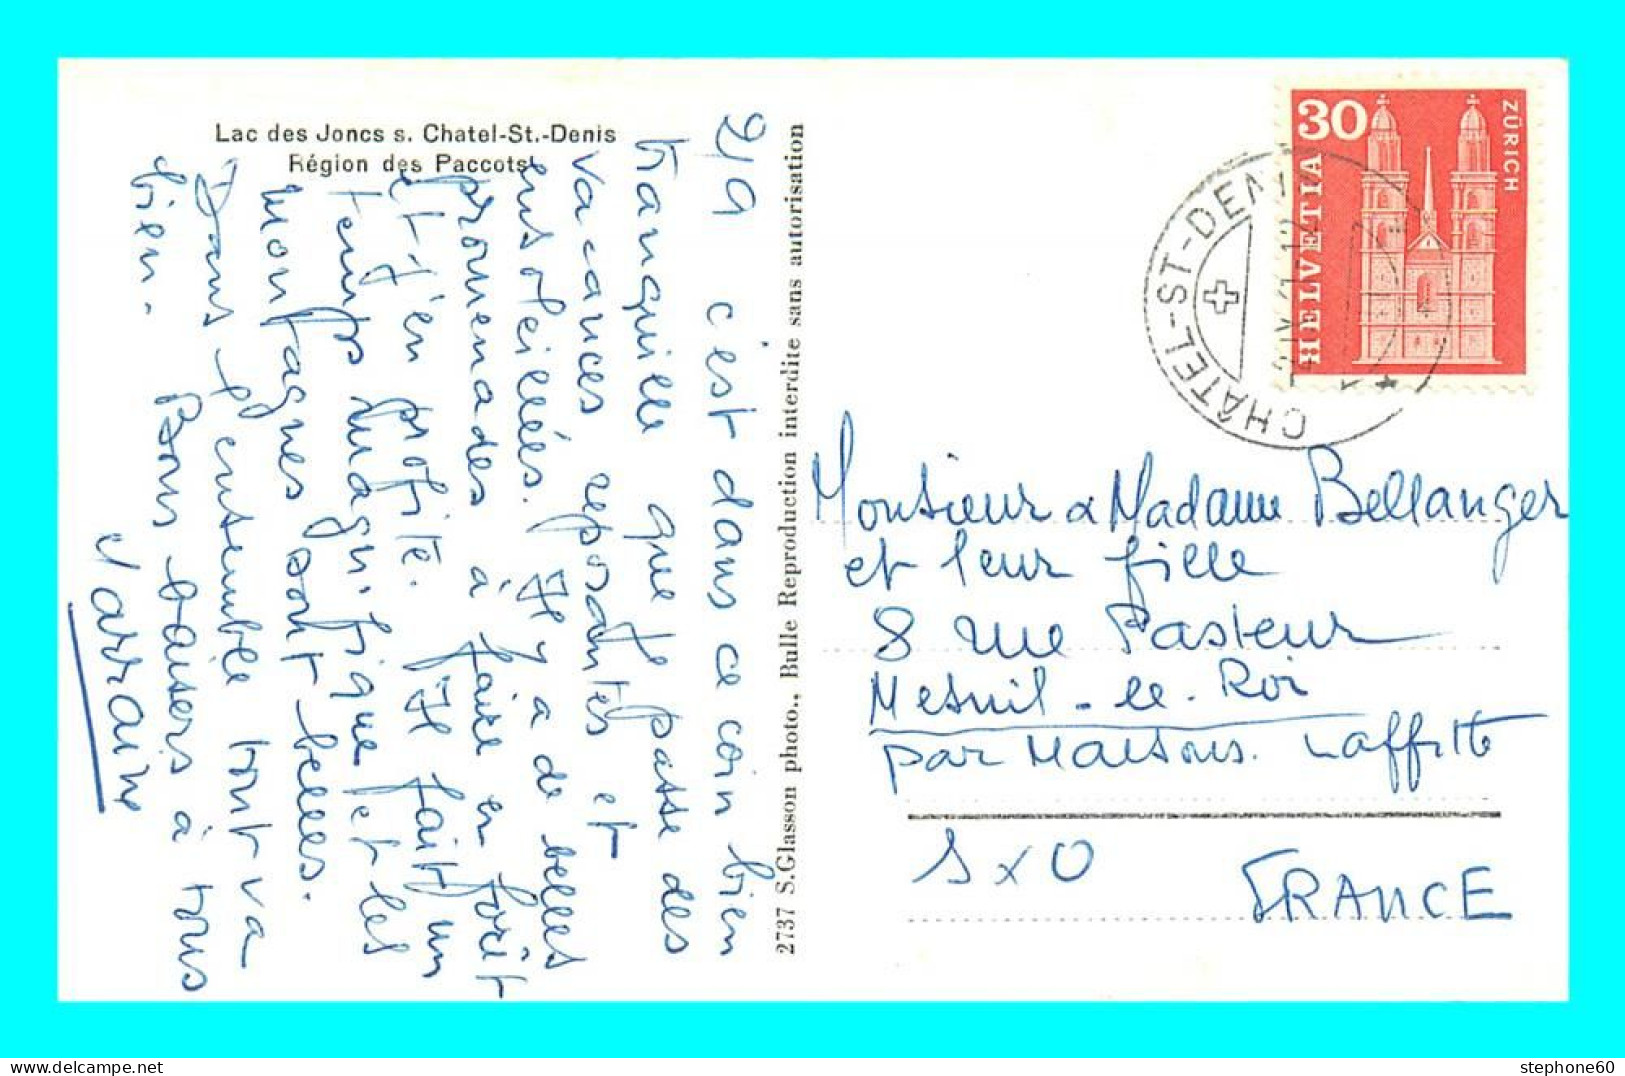 Lac des Joncs s. Chatel-St.-Denis
Région des Paccots
2/9 c'est dans ce coin bien
tranquille que je passe des
vacances reposantes et
ensoleillées. Il y a de belles
promenades à faire en forêt
et j'en profite. Il fait un
temps magnifique et les
montagnes sont belles.
Dans l'ensemble tout va
bien. Bons baisers à tous
Marraine
2737 S. Glasson photo., Bulle Reproduction interdite sans autorisation
30
HELVETIA
ZÜRICH
CHÂTEL-ST-DENIS
Monsieur & Madame Bellanger
et leur fille
8 rue Pasteur
Mesnil-le-Roi
par Maisons. Laffitte
S x O
FRANCE
stephone60